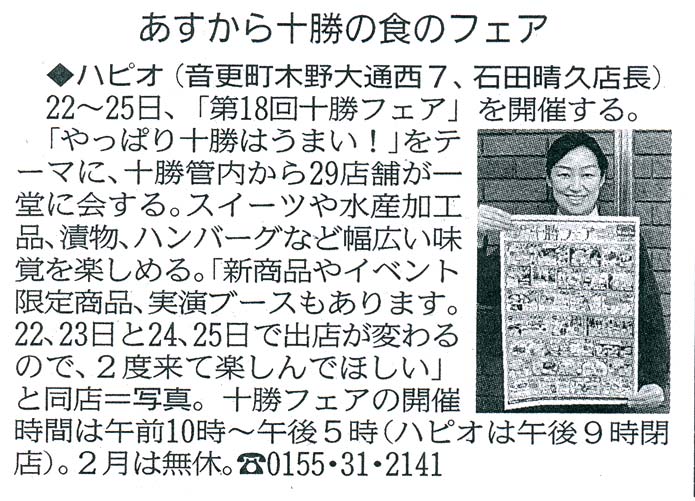 あすから十勝の食のフェア
◆ハピオ（音更町木野大通西７、石田晴久店長）
22～25日、「第18回十勝フェア」を開催する。
「やっぱり十勝はうまい！」をテ
ーマに、十勝管内から29店舗が一
堂に会する。スイーツや水産加工
品、漬物、ハンバーグなど幅広い味
覚を楽しめる。「新商品やイベント
限定商品、実演ブースもあります。
22、23日と24、25日で出店が変わる
ので、２度来て楽しんでほしい」
と同店＝写真。十勝フェアの開催
時間は午前10時～午後５時（ハピオは午後９時閉
店）。２月は無休。☎0155・31・2141
十勝フェア